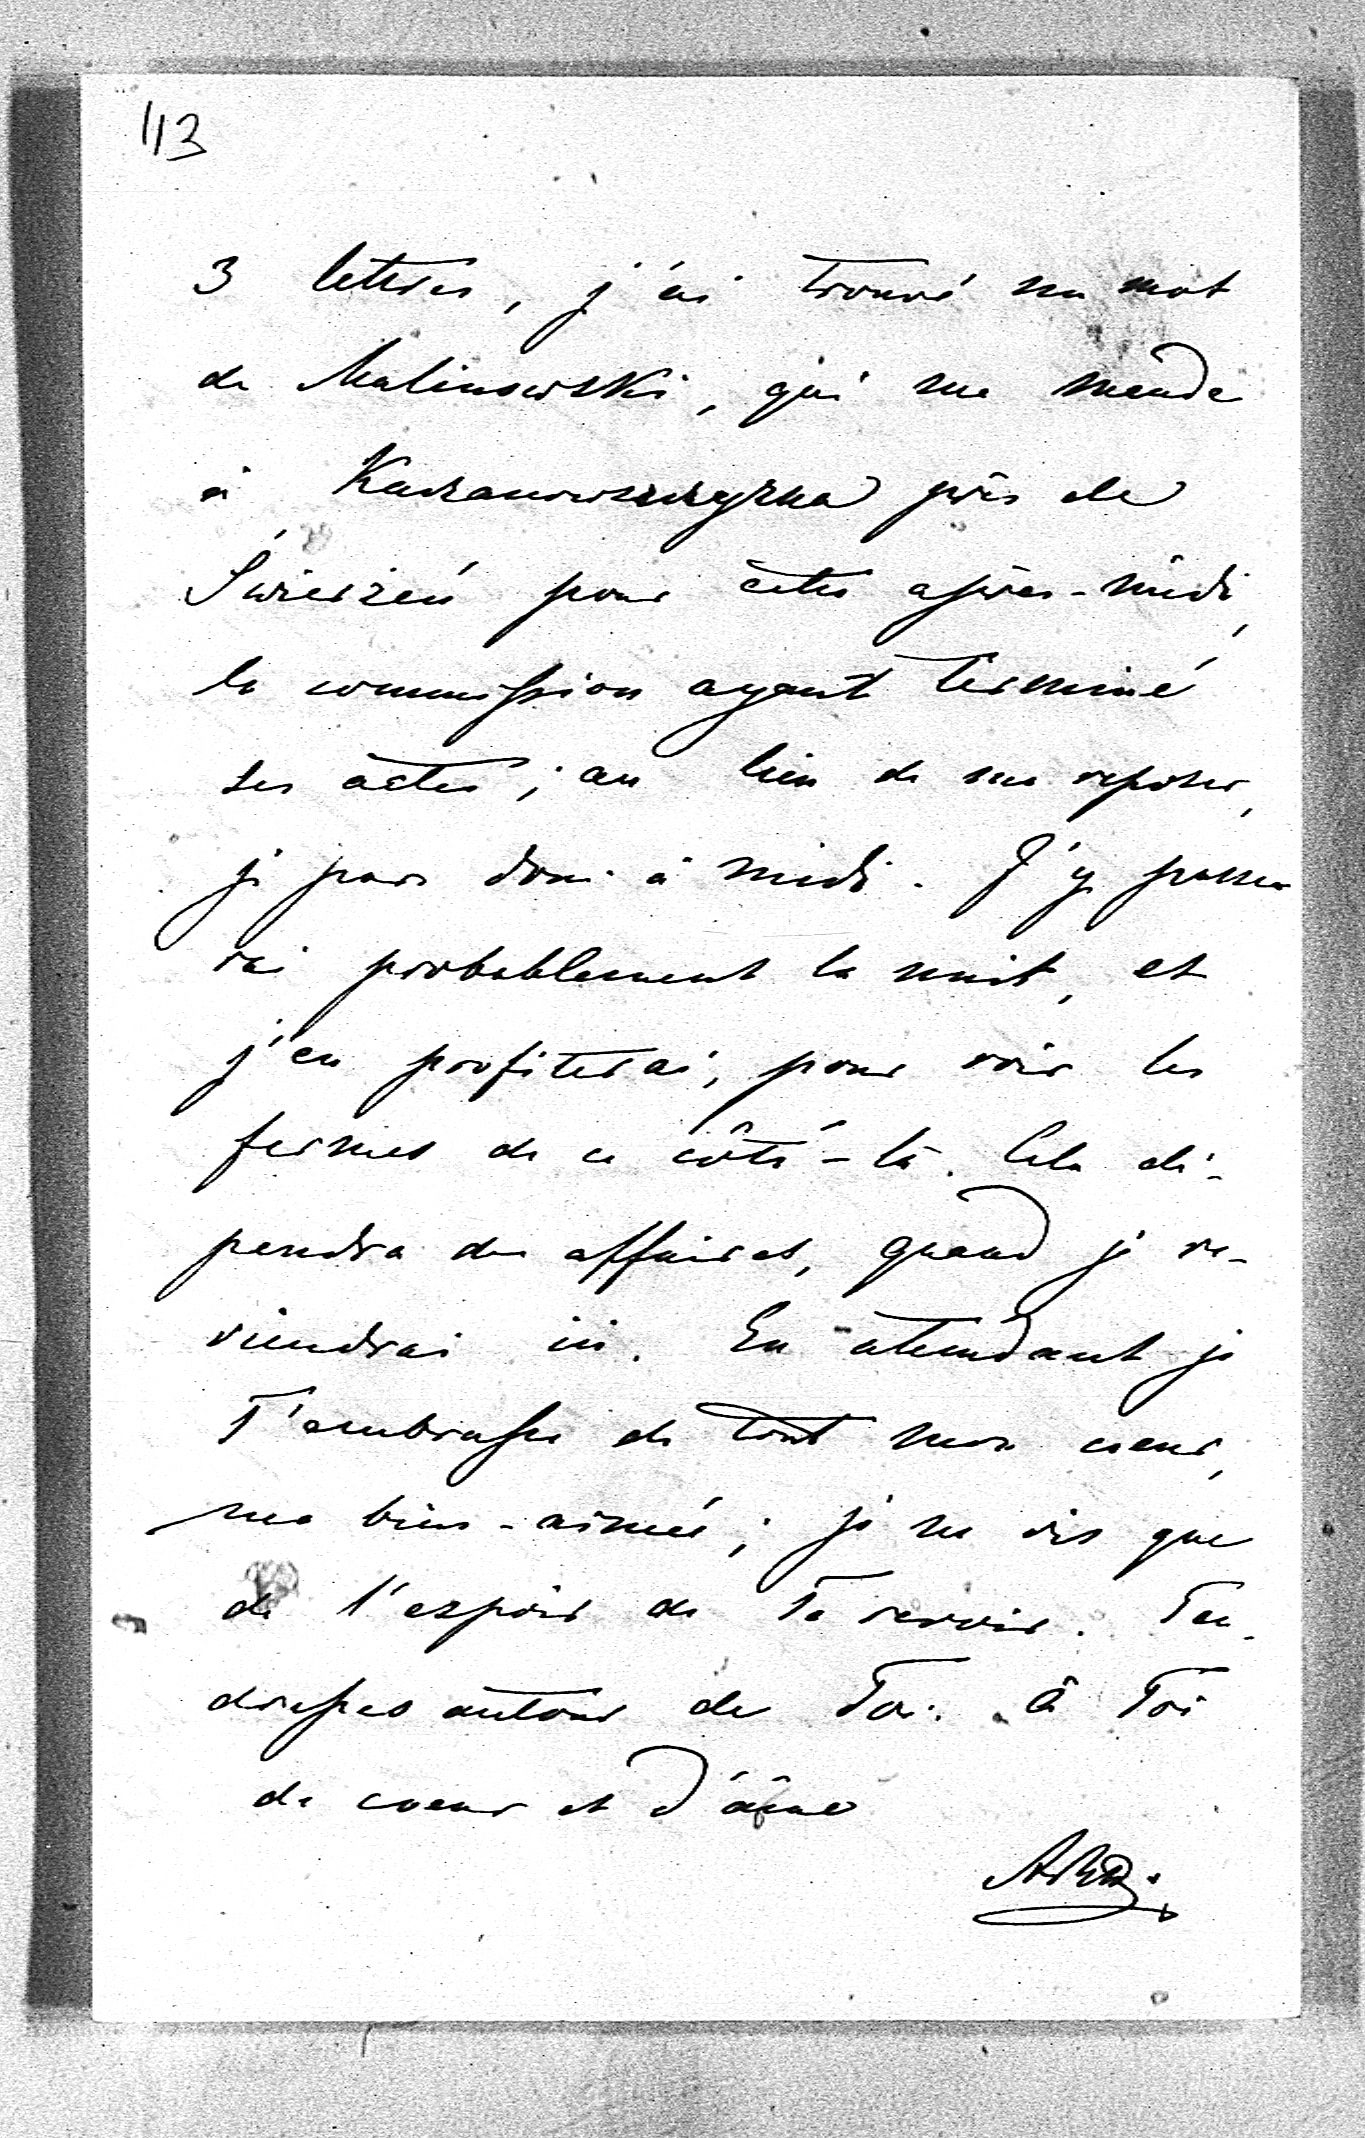 113
3 lettres, j'ai trouvé un mot
de Malinowski, qui me mande
à près de
Świerżeń pour cette après-midi,
la commission ayant terminé
ses actes ; au lieu de me reposer,
je pars donc à midi. J'y passe
rai probablement la nuit, et
j'en profiterai, pour voir les
fermes de ce côté-là. Cela dé-
pendra des affaires, quand je re-
viendrai ici. En attendant je
T'embrasse de tout mon cœur,
ma bien-aimée ; je ne vis que
de l'espoir de Te revoir. Ten-
dresses autour de Toi. à Toi
de coeur et d'âme